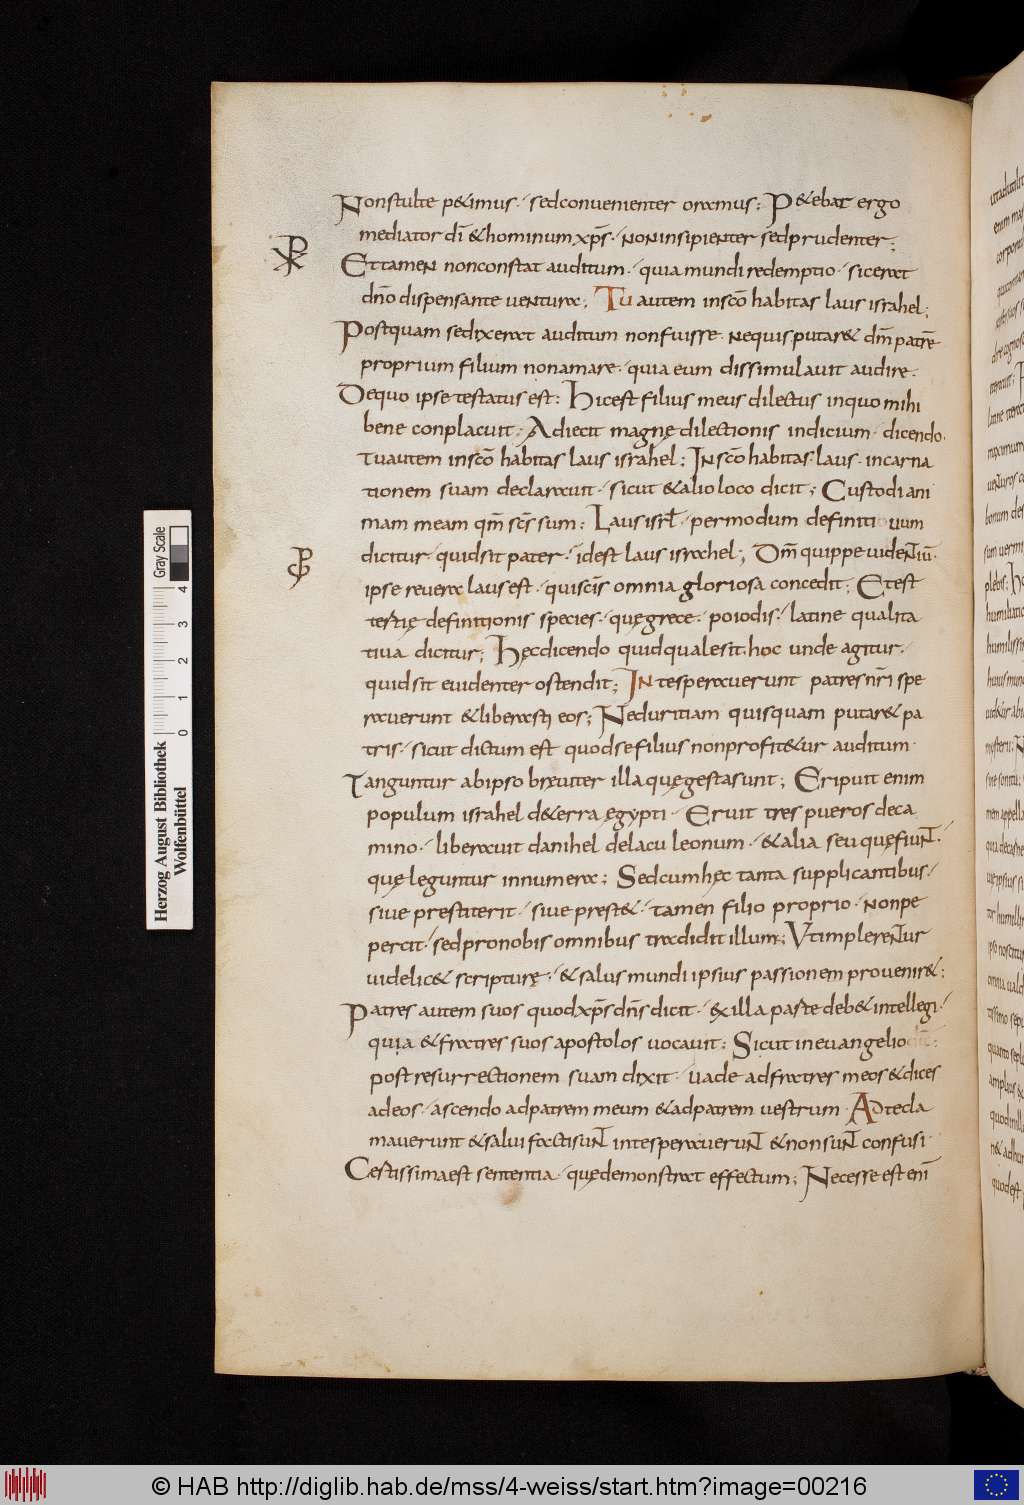 Nonstulte p&imus· sedconuenienter oramus: P&ebat ergo
mediator di̅ &hominum xp̅s· noninsipienter sedprudenter;
Ettamen nonconstat auditum· quia mundi redemptio· sicerat
dn̅o dispensante uentura; Tu autem insco̅ habitas laus israhel;
Postquam sedixerat auditum nonfuisse· nequis putar& dm̅ patre̅
proprium filium nonamare· quia eum dissimulauit audire·
Dequo ipse testatus est: Hicest filius meus dilectus inquo mihi
bene conplacuit; Adiecit magnę dilectionis indicium· dicendo·
Tuautem insco̅ habitas laus israhel; Insco̅ habitas· laus· incarna
tionem suam declarauit· sicut &alio loco dicit; Custodi ani
mam meam qm̅ sc̅s sum: Laus isrl̅· permodum definiti uum
dicitur· quidsit pater· idest laus israhel; Dm̅ quippe uidentiu̅·
ipse reuera laus est· quisci̅s omnia gloriosa concedit; Etest
tertię definitionis species· quęgrece· poiodis· latine qualita
tiua dicitur; Hęcdicendo quidqualesit· hoc unde agitur·
quidsit euidenter ostendit; In tesperauerunt patres nr̅i spe
rauerunt &liberasti eos; Neduritiam quisquam putar& pa
tris· sicut dictum est quodsefilius nonprofit&ur auditum·
Tanguntur abipso breuiter illa quęgestasunt; Eripuit enim
populum israhel d&erra ęgypti· Eruit tres pueros deca
mino· liberauit danihel delacu leonum· &alia seu quęfiunt·
quę leguntur innumera; Sedcumhęc tanta supplicantibus·
siue prestiterit· siue prest&· tamen filio proprio· nonpe
percit· sedpronobis omnibus tradidit illum; Vtimplerentur
uidelic& scripturę· &salus mundi ipsius passionem prouenir&:
Patres autem suos quodxp̅s dn̅s dicit· &xilla parte deb& intellegi·
quia &fratres suos apostolos uocauit: Sicut in euangelio
post resurrectionem suam dixit· uade adfratres meos &dices
adeos· ascendo adpatrem meum &adpatrem uestrum· Adtecla
mauerunt &salui factisunt intesperauerunt &nonsunt confusi·
Certissimaest sententia· quędemonstrat effectum; Necesse est eni̅
Herzog August Bibliothek
Wolfenbüttel
Gray Scale
0 1 2 3 4
© HAB http://diglib.hab.de/mss/4-weiss/start.htm?image=00216